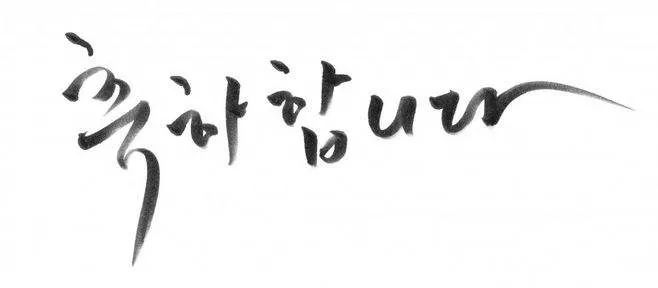 축하합니다